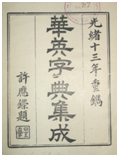 光緒十三年重鐫
華英字典集成
許應鑅題